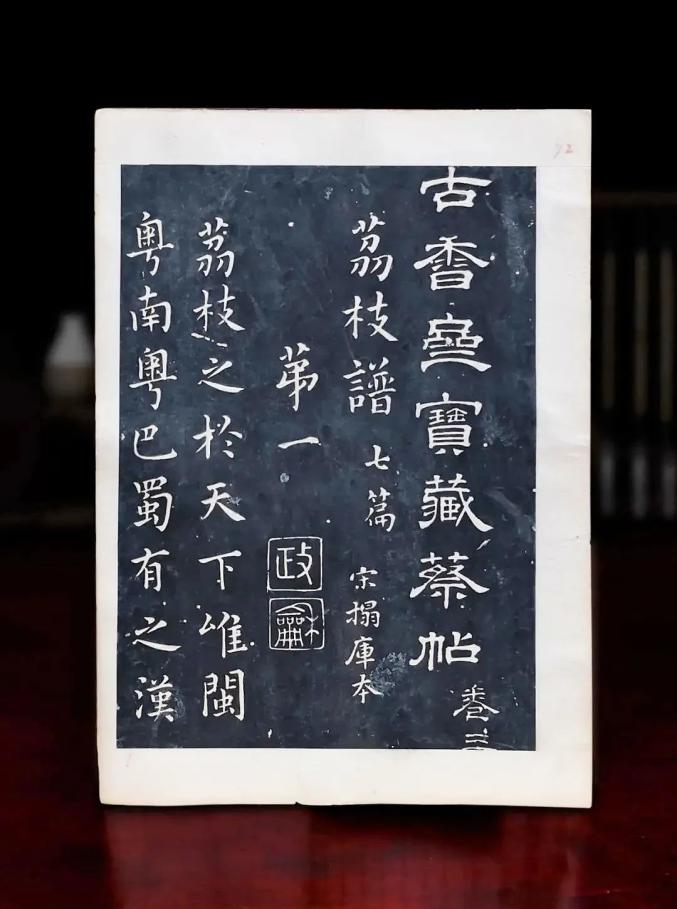 古香齋寶藏蔡帖 卷
茘枝譜 七篇 宋搨庫本
苐一
政
龢
茘枝之於天下唯閩
粵南粵巴蜀有之漢